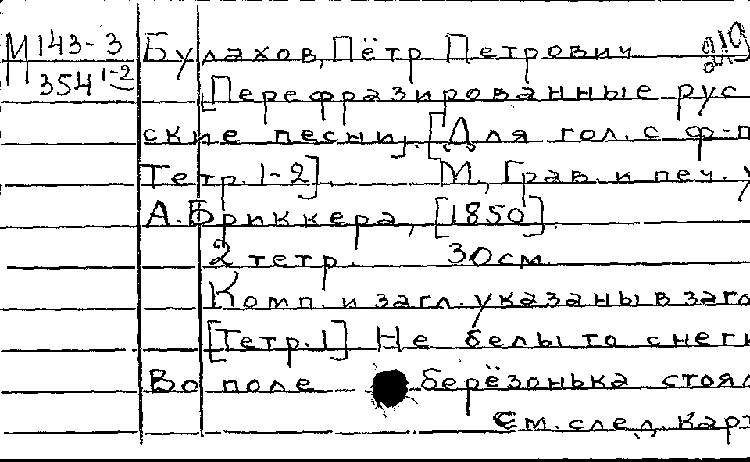 М 143-3 Булахов, Пётр Петрович 219
П 354 1-2
[Перефразированные рус
ские песни]. [Для гол. с ф-п
Тетр. 1-2]. М., Грав. и печ. у
А. Бриккера, [1850].
2 тетр. 30 см.
Комп. и загл. указаны в заго
[Тетр. 1] Не белы то снеги
Во поле берёзонька стоял
См. след. карт